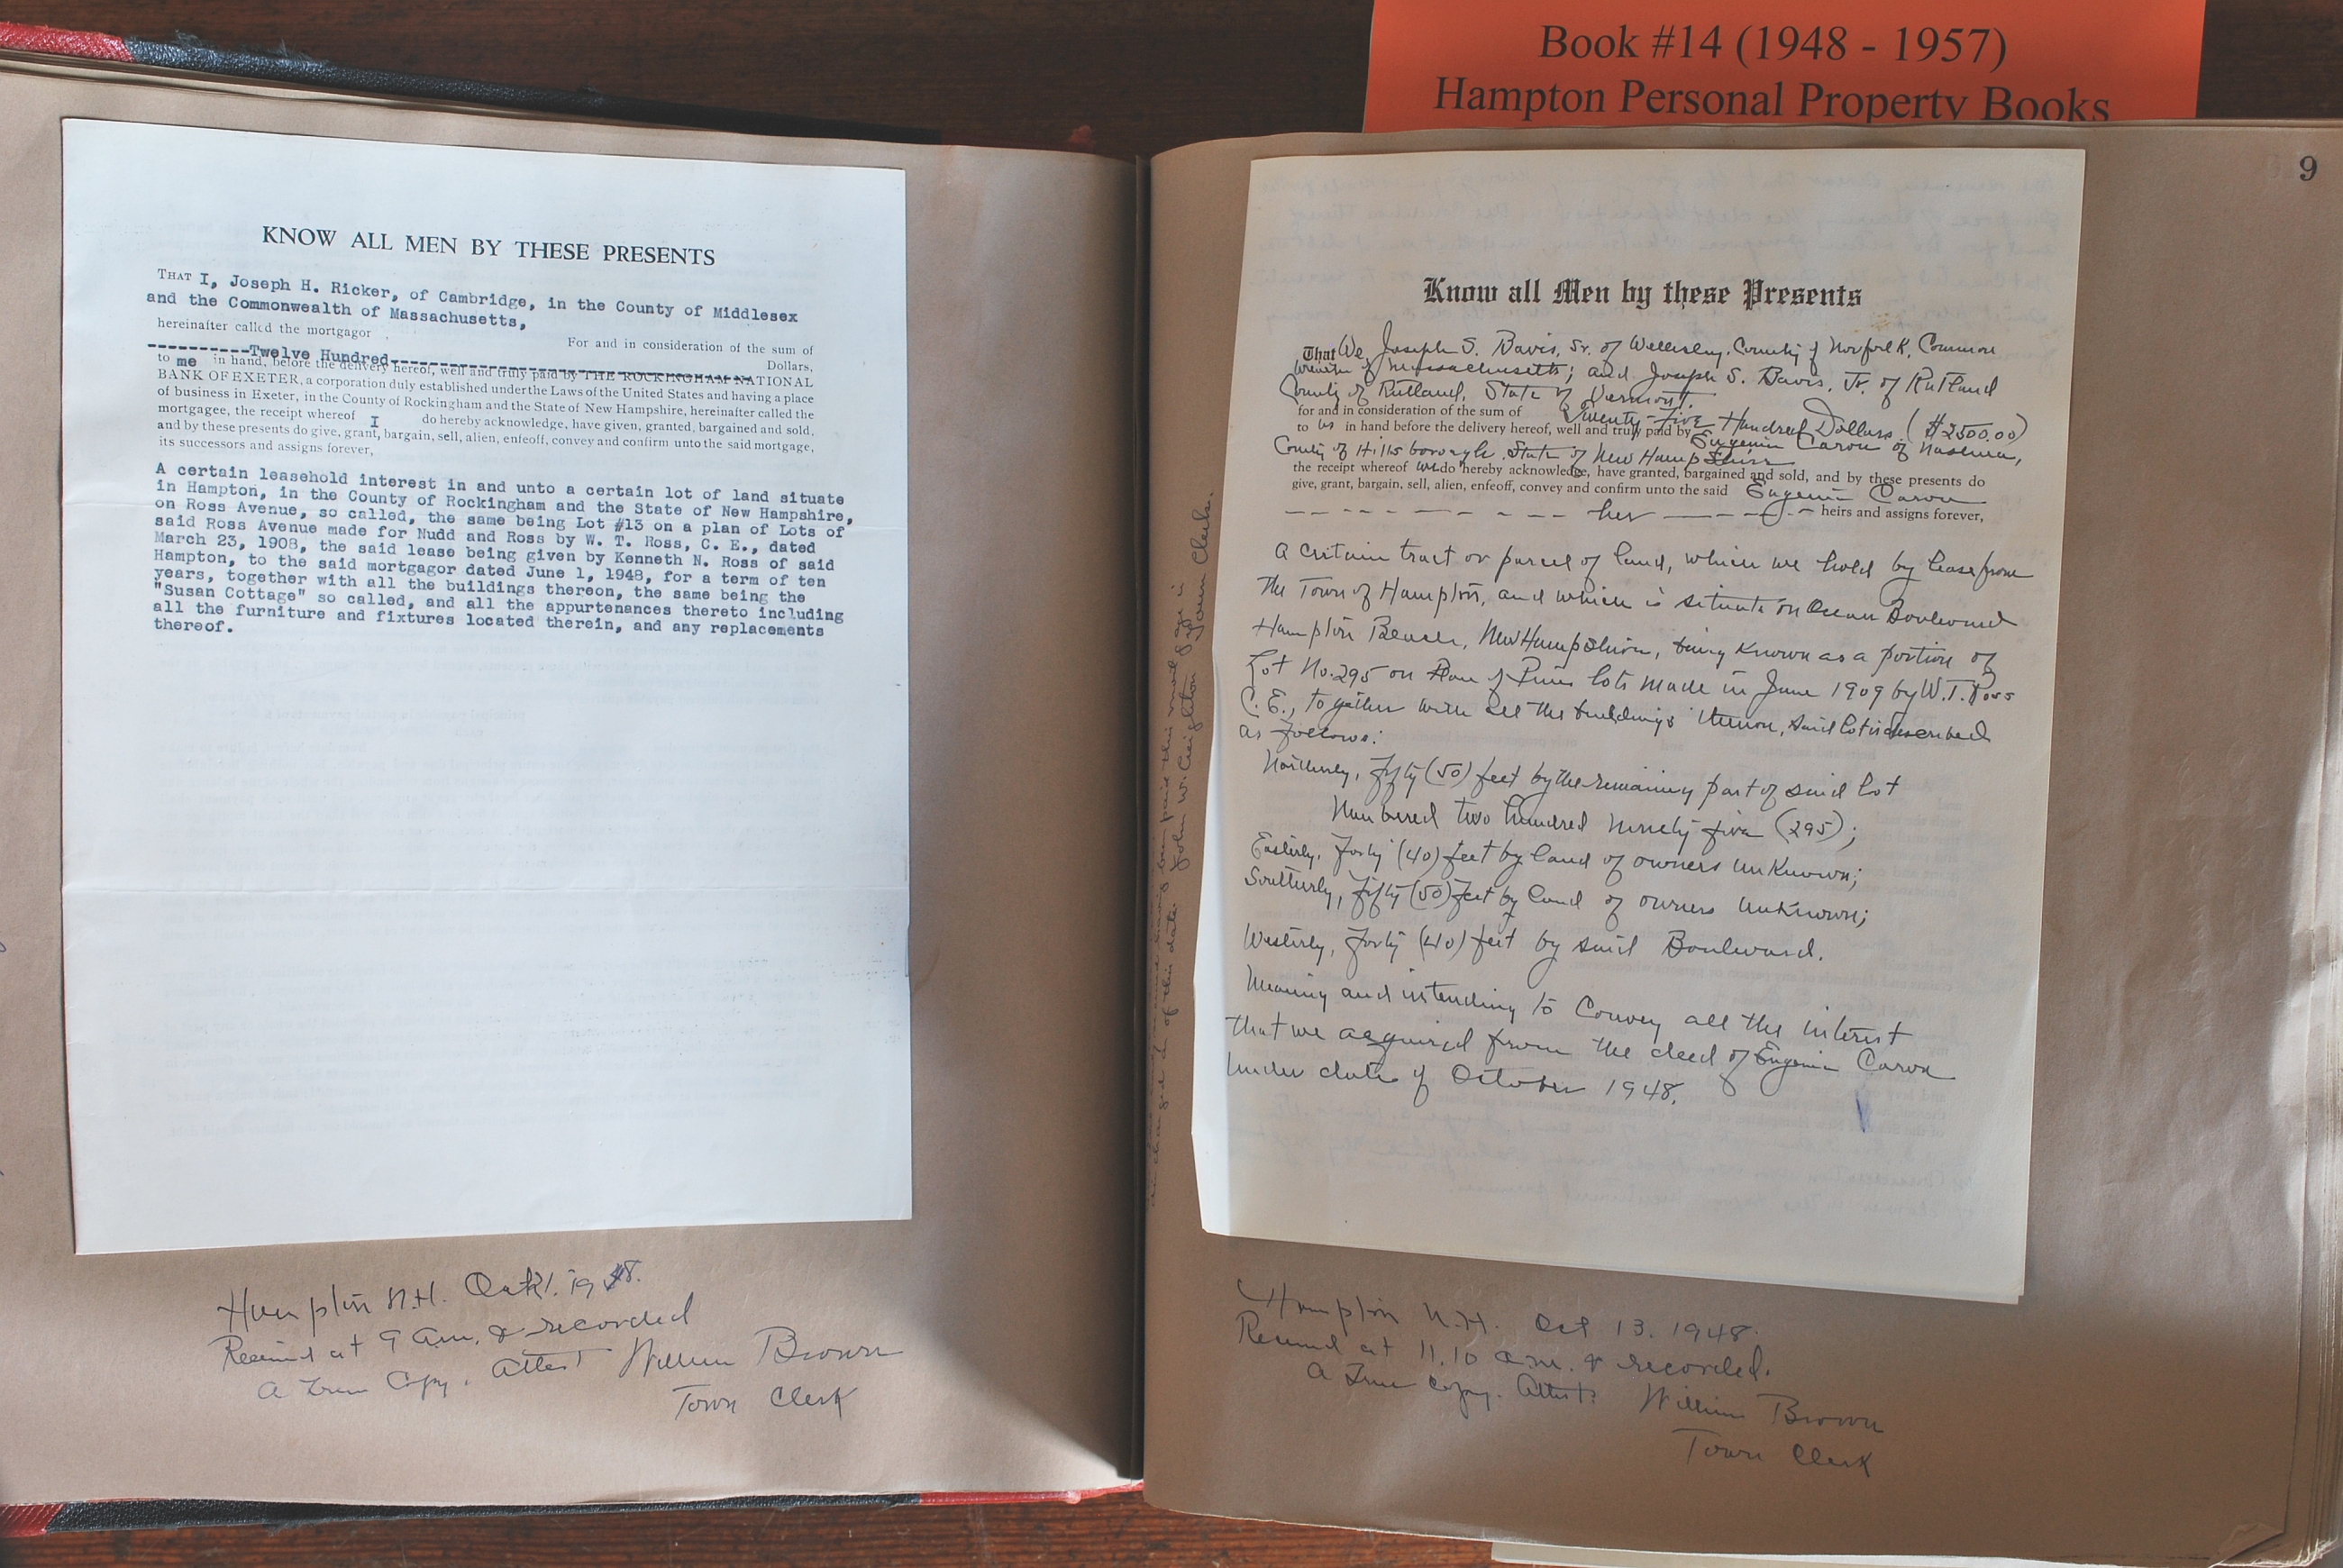 Book #14 (1948 - 1957)
Hampton Personal Property Books
KNOW ALL MEN BY THESE PRESENTS
THAT I, Joseph H. Ricker, of Cambridge, in the County of Middlesex
and the Commonwealth of Massachusetts,
hereinafter called the mortgagor For and in consideration of the sum of
----------Twelve Hundred---------------------------------------- Dollars,
to me in hand, before the delivery hereof, well and truly paid by THE ROCKINGHAM NATIONAL
BANK OF EXETER, a corporation duly established under the Laws of the United States and having a place
of business in Exeter, in the County of Rockingham and the State of New Hampshire, hereinafter called the
mortgagee, the receipt whereof I do hereby acknowledge, have given, granted, bargained and sold,
and by these presents do give, grant, bargain, sell, alien, enfeoff, convey and confirm unto the said mortgage,
its successors and assigns forever,
A certain leasehold interest in and unto a certain lot of land situate
in Hampton, in the County of Rockingham and the State of New Hampshire,
on Ross Avenue, so called, the same being Lot #13 on a plan of Lots of
said Ross Avenue made for Nudd and Ross by W. T. Ross, C. E., dated
March 23, 1908, the said lease being given by Kenneth N. Ross of said
Hampton, to the said mortgagor dated June 1, 1948, for a term of ten
years, together with all the buildings thereon, the same being the
"Susan Cottage" so called, and all the appurtenances thereto including
all the furniture and fixtures located therein, and any replacements
thereof.
Hampton N.H. 1948.
Received at 9 a.m. & recorded
a True Copy. Attest William Brown
Town Clerk
9
Know all Men by these Presents
That We, Joseph S. Davis, Sr. of Wellesley, County of Norfolk, Common
wealth of Massachusetts; and Joseph S. Davis, Jr. of Rutland
County of Rutland, State of Vermont,
for and in consideration of the sum of Twenty-Five Hundred Dollars ($2500.00)
to us in hand before the delivery hereof, well and truly paid by Eugenia Caron of Nashua,
County of Hillsborough, State of New Hampshire
the receipt whereof we do hereby acknowledge, have granted, bargained and sold, and by these presents do
give, grant, bargain, sell, alien, enfeoff, convey and confirm unto the said Eugenia Caron
her heirs and assigns forever,
A certain tract or parcel of land, which we hold by lease from
the Town of Hampton, and which is situate on Ocean Boulevard
Hampton Beach, New Hampshire, being known as a portion of
Lot No. 295 on Plan of lots made in June 1909 by W. T. Ross
C. E., together with all the buildings thereon, said lot is described
as follows:
Northerly, fifty (50) feet by the remaining part of said lot
Numbered two hundred ninety five (295);
Easterly, forty (40) feet by land of owners unknown;
Southerly, fifty (50) feet by land of owners unknown;
Westerly, forty (40) feet by said Boulevard.
Meaning and intending to convey all the interest
that we acquired from the deed of Eugenia Caron
under date of October 1948.
having been paid this mortgage is
discharged as of this date. John W. Creighton Town Clerk.
Hampton N.H. Oct 13. 1948.
Received at 11.10 a.m. & recorded.
a True copy. Attest: William Brown
Town Clerk